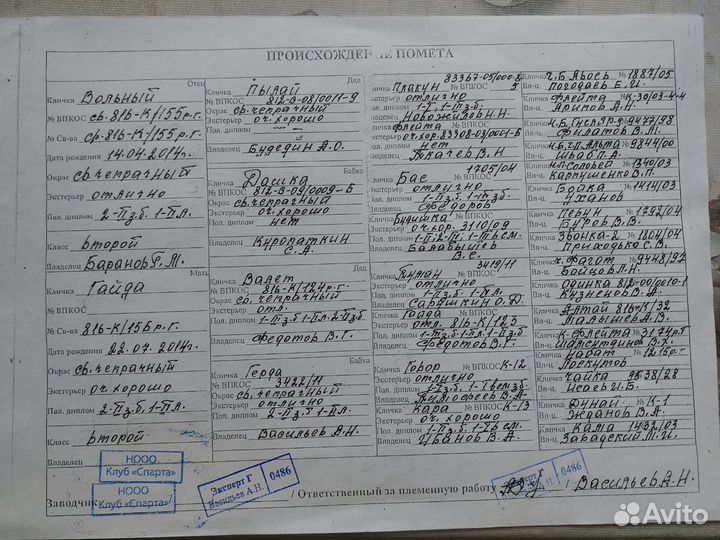 ПРОИСХОЖДЕНИЕ ПОМЕТА
Отец
Кличка Вольный
№ ВПКОС св. 816-К/155р.г.
№ Св-ва ср. 816-К/155р.г.
Дата рождения 14.04.2014г.
Окрас св.чепрачный
Экстерьер отлично
Пол. диплом 2-IIз.б. 1-IIл.
Класс второй
Владелец Баранов Р.М.
Мать
Кличка Гайда
№ ВПКОС
№ Св-ва 816-К/156р.г.
Дата рождения 22.04.2014г.
Окрас св.чепрачный
Экстерьер оч.хорошо
Пол. диплом 2-IIз.б 1-IIл.
Класс второй
Владелец
Дед
Кличка Пылай
№ ВПКОС 812-В-08/0011-9
Окрас св.чепрачный
Экстерьер оч. хорошо
Пол. диплом
Владелец Будедин А.О.
Бабка
Кличка Дашка
№ ВПКОС 812-В-09/0009-Б
Окрас св.чепрачный
Экстерьер оч. хорошо
Пол. диплом нет
Владелец Куропаткин С.А
Дед
Кличка Валет
№ ВПКОС 816-К/124р.г.
Окрас св.чепрачный
Экстерьер отл.
Пол. диплом 1-IIз.б 1-IIл. 2-IIз.б
Владелец Федотов В.Г.
Бабка
Кличка Герда
№ ВПКОС 3422/11
Окрас св.чепрачный
Экстерьер отлично
Пол. диплом 2-IIз.б 1-IIл.
Владелец Васильев А.Н.
83367-05/000-8
Кличка Плакун № ВПКОС 5
Экстерьер отлично
Пол. диплом
Владелец Новожилов Н.Г.
Кличка Флейта № ВПКОС
оч.хор. 83308-03/0001-Б
Пол. диплом нет
Владелец Ткачев В.Н
1705/04
Кличка Бас № ВПКОС
Экстерьер отлично
Пол. диплом
Владелец Федоров
Кличка Бубишка № ВПКОС
оч.хор. 3110/09
Пол. диплом
Владелец Балавышев В.С.
3419/11
Кличка № ВПКОС
Экстерьер отлично
Пол. диплом 1-IIз.б 1-IIл.
Владелец Сарушкин О.Д.
Кличка Гайда № ВПКОС
Экстерьер отл. 816-К/123
Пол. диплом
Владелец Федотов В.Г.
Кличка Говор № ВПКОС К-12
Экстерьер отлично
Пол. диплом
Владелец Тимофеев В.А.
Кличка Кара № ВПКОС К-13
Экстерьер оч. хорошо
Пол. диплом
Владелец Иванов В.А.
Кличка ч.Б.Авось № 1887/05
Вл-ц. Погодаев Е.И.
Кличка Флейта К-30/03-4-4
Вл-ц. Арипов А.Н.
Кличка ч.Б.Гусляр № 9447/98
Вл-ц. Филатов В.М.
Кличка Альта № 9844/00
Вл-ц. Шваб П.А.
Кличка Соловей № 1340/03
Вл-ц. Карпушенко В.П.
Кличка Бойка № 1414/03
Вл-ц. Уханов
Кличка Перун № 1792/04
Вл-ц. Буров В.В.
Кличка Звонка-2 № 1804/04
Вл-ц. Приходько С.В.
Кличка ч. Фагот № 9448/97
Вл-ц. Бойцов Л.Н.
Кличка Одинка 812-К-00/0010-1
Вл-ц. Кузнецов В.А.
Кличка Алтай № 816-К/32
Вл-ц. Малышев А.В.
Кличка Флейта № 3174рт
Вл-ц. Шамситдинов В.Х.
Кличка Набат № 1215р.г
Вл-ц. Лоскутов
Кличка Чайка № 9538/28
Вл-ц. Исаев И.Б.
Кличка Дунай № К-1
Вл-ц. Жданов В.А.
Кличка Кама № 1432/03
Вл-ц. Завадский М.И.
НООО
Клуб «Спарта»
НООО
Клуб «Спарта»
Эксперт Г
Васильев А.Н. 0486
Эксперт Г
Васильев А.Н. 0486
Заводчик / Ответственный за племенную работу / Васильев А.Н.
Avito